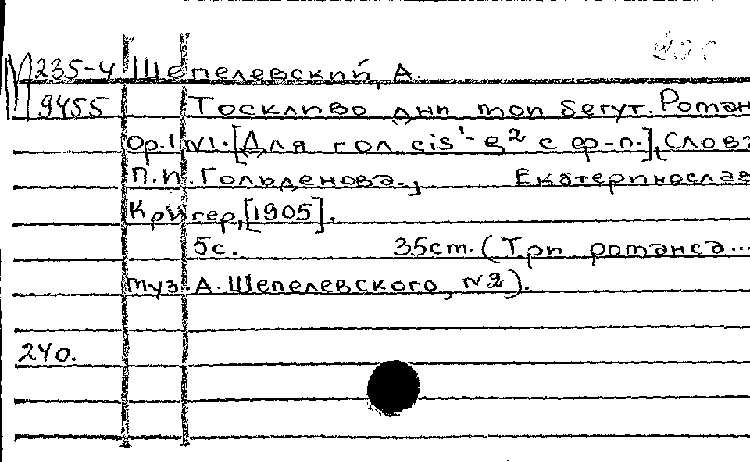 М235-4 Шепелевский, А.
9455 Тоскливо дни мои бегут. Роман
Op.1 №1. [Для гол cis¹-e² с ф-п.], Слова
П.П. Гольденова., Екатеринослав
Кригер, [1905].
5с. 35см. (Три романса...
муз. А. Шепелевского, №2).
240.